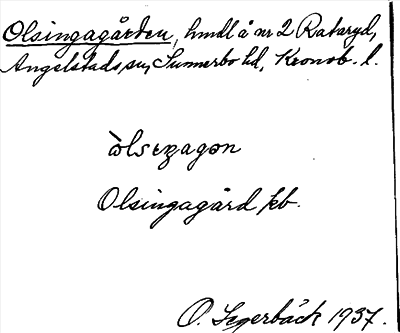 Olsingagården, hmdl å nr 2 Rataryd,
Angelstads sn, Sunnerbo hd, Kronob. l.
òlsɩŋagɷn
Olsingagård kb.
O. Segerbäck 1937.